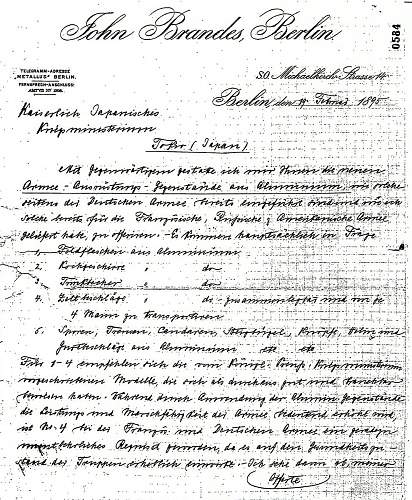 0584
John Brandes, Berlin
TELEGRAMM-ADRESSE
"METALLUS" BERLIN.
FERNSPRECH-ANSCHLUSS:
SO. Michaelkirch-Strasse 14
Berlin, den Februar 1895
Kaiserlich Japanisches
Kriegsministerium
Tokio (Japan)
Mit Gegenwärtigem gestatte ich mir Ihnen die neuen
Armee-Ausrüstungs-Gegenstände aus Aluminium, wie solche
seitens der Deutschen Armee bereits eingeführt sind und wie ich
solche bereits für die Französische, Russische, Amerikanische Armee
geliefert habe, zu offeriren. - Es kommen hauptsächlich in Frage
1, Feldflaschen aus Aluminium
2, Kochgeschirre " do
3, Trinkbecher " do
4, " do - zusammenlegbar und von je
4 Mann zu transportiren
5, Sporen, Trensen, Candaren, Steigbügel, Knöpfe, Helm und
aus Aluminium etc etc
1-4 empfehlen sich die vom Königl. Preuß. Kriegsministerium
vorgeschriebenen Modelle, die sich als durchaus gut und
haben. Während durch Anwendung der Alumin. Gegenstände
die Leistungs und Marschfähigkeit der Armee bedeutend erhöht wird
ist No. 4 bei der Französ. und Deutschen Armee ein geradezu
Requisit geworden, da es auf den Gesundheitszu
stand der Truppen erheblich einwirkt. - Ich sehe dann ob. meiner
Offerte